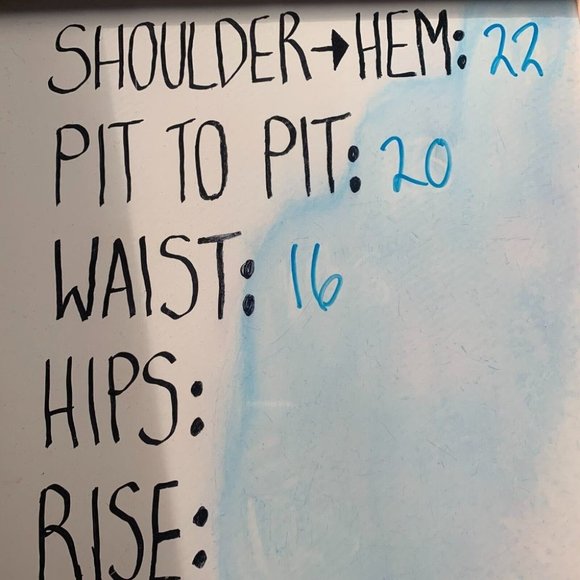 SHOULDER→HEM: 22
PIT TO PIT: 20
WAIST: 16
HIPS:
RISE: